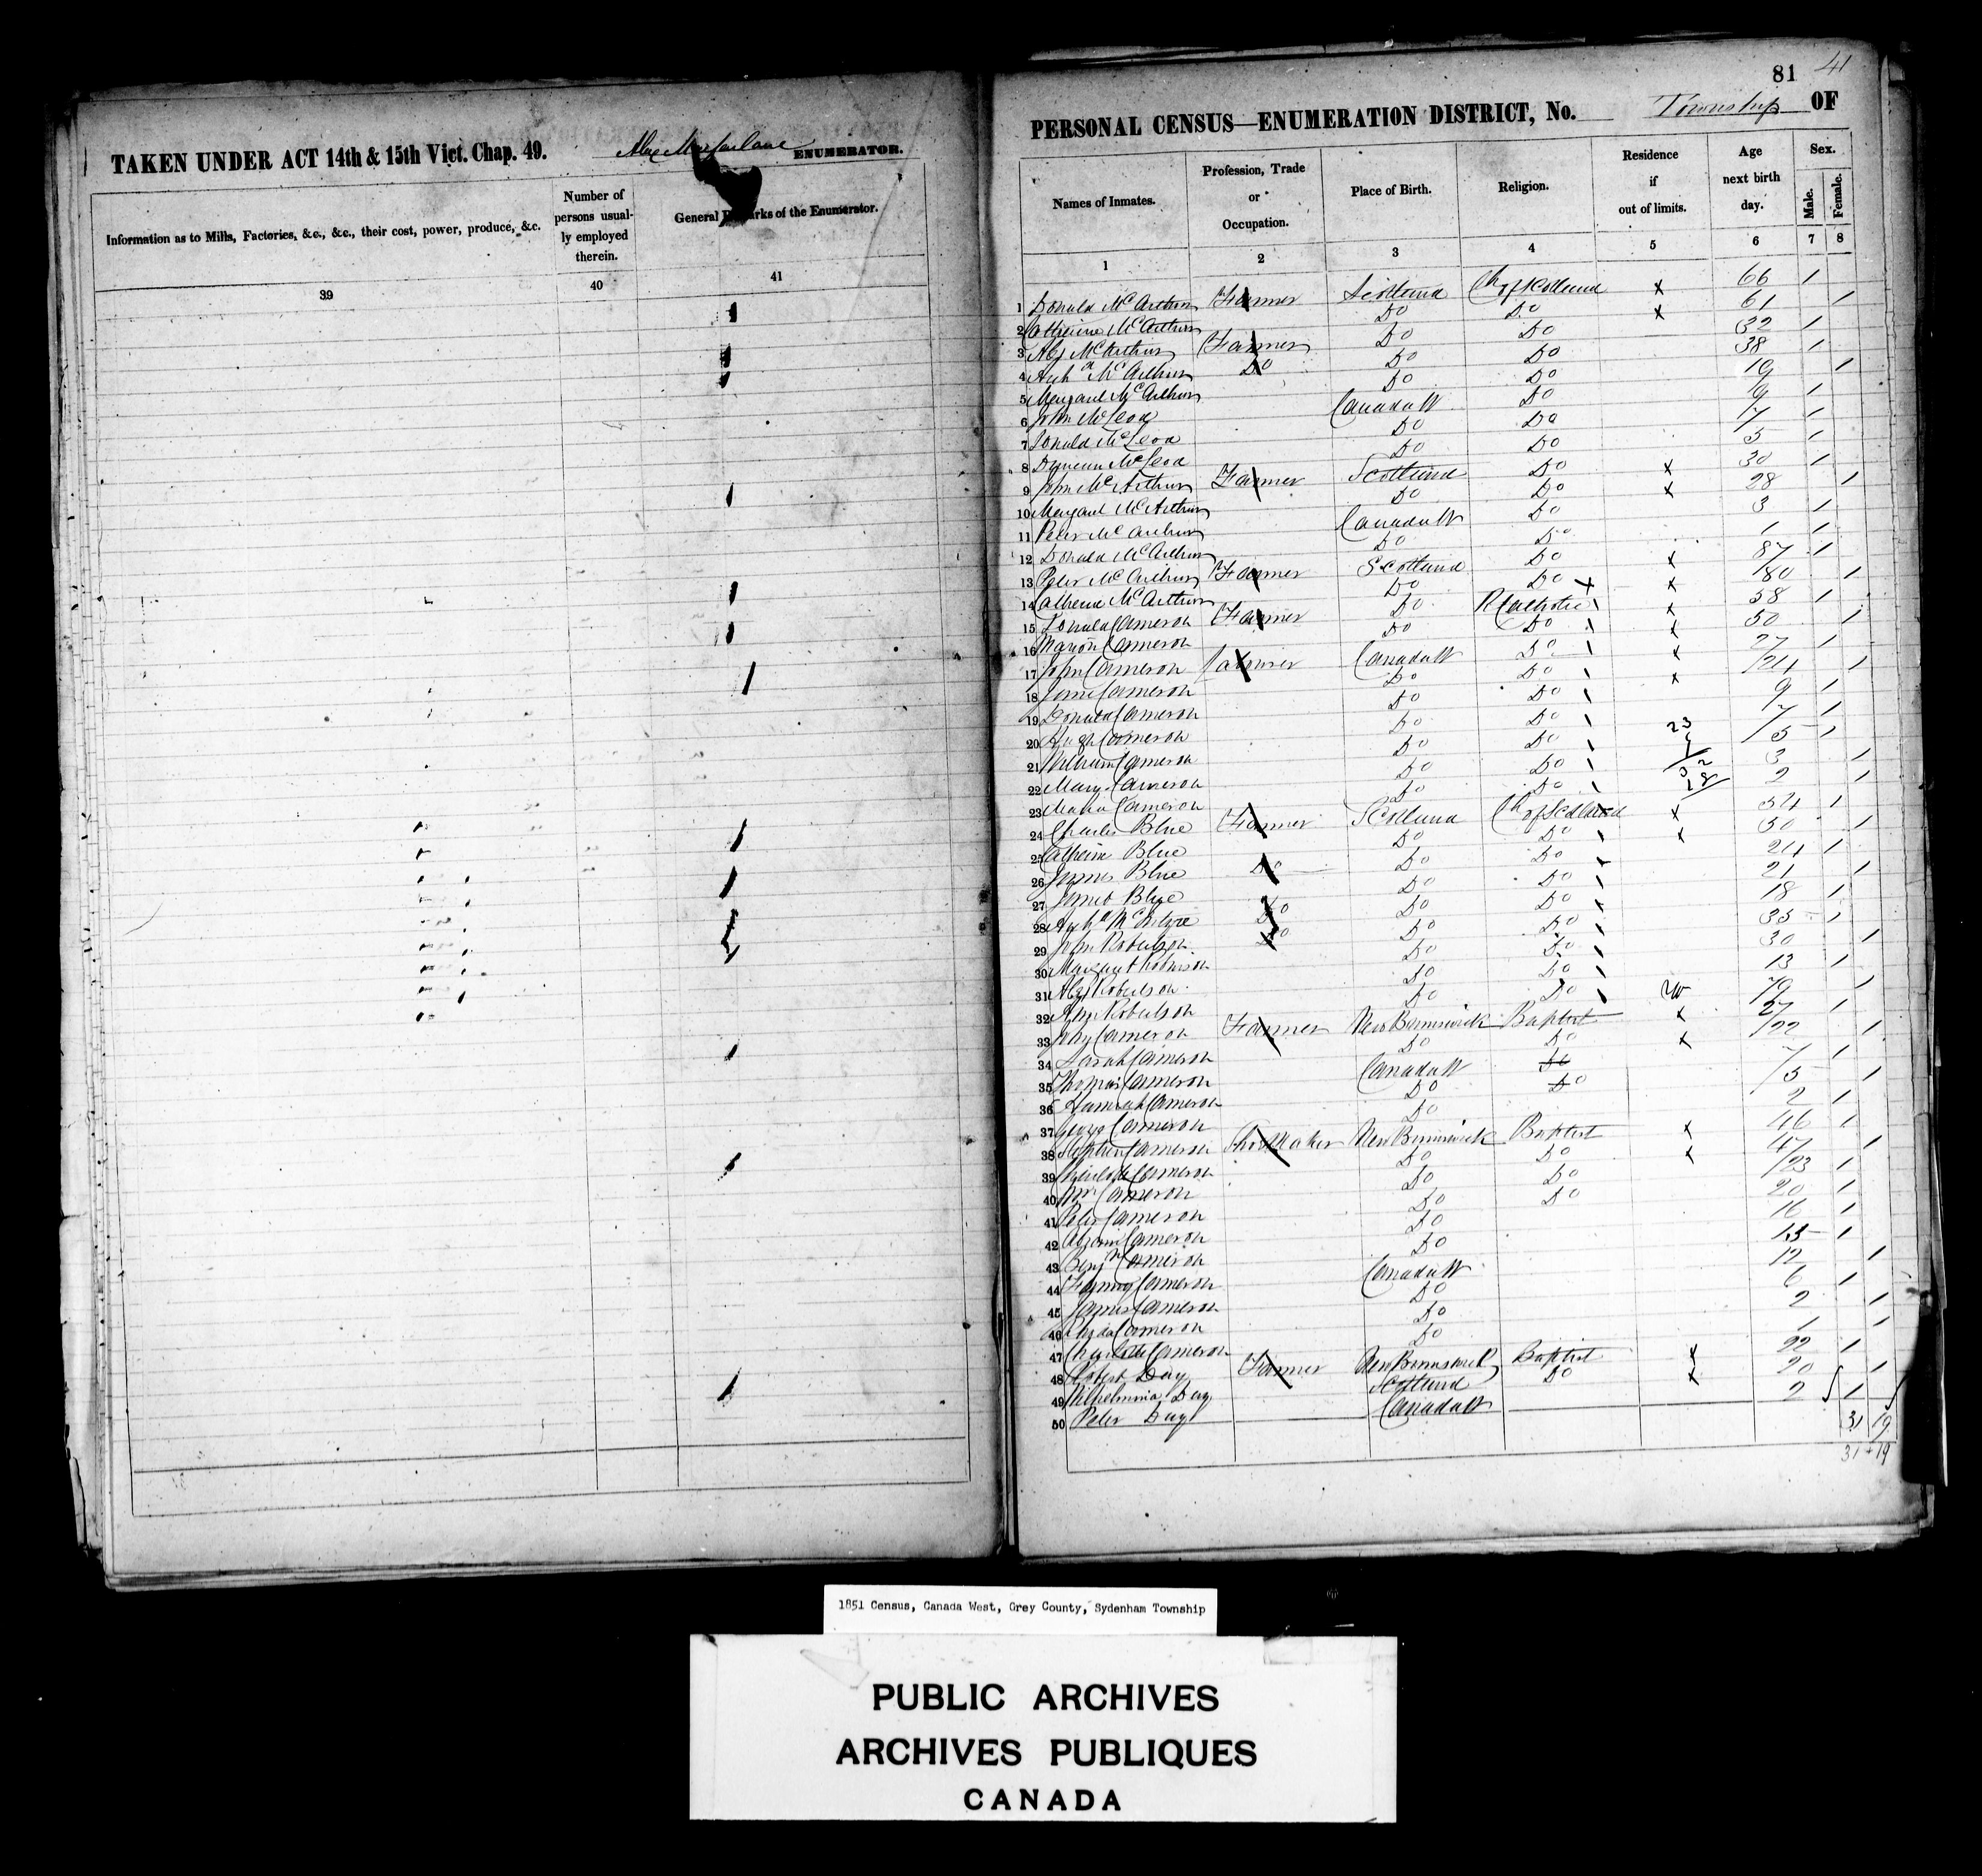 TAKEN UNDER ACT 14th & 15th Vict. Chap. 49. Alex Macfarlane ENUMERATOR.
Information as to Mills, Factories, &c., &c., their cost, power, produce, &c.
Number of persons usually employed therein.
General Remarks of the Enumerator.
39 40 41
81 41
PERSONAL CENSUS—ENUMERATION DISTRICT, No. Township OF
Names of Inmates. Profession, Trade or Occupation. Place of Birth. Religion. Residence if out of limits. Age next birth day. Sex. Male. Female.
1 2 3 4 5 6 7 8
1 Donald McArthur Farmer Scotland Ch of Scotland x 66 1
2 Catherine McArthur Do Do x 61 1
3 Alex McArthur Farmer Do Do 32 1
4 Arch McArthur Do Do Do 38 1
5 Margaret McArthur Do Do 19 1
6 John McLeod Canada W Do 9 1
7 Donald McLeod Do Do 7 1
8 Duncan McLeod Do Do 5 1
9 John McArthur Farmer Scotland Do x 30 1
10 Margaret McArthur Do Do x 28 1
11 Peter McArthur Canada W Do 3 1
12 Donald McArthur Do Do 1 1
13 Peter McArthur Farmer Scotland Do x 87 1
14 Catherine McArthur Do Do x 80 1
15 Donald Cameron Farmer Do R Catholic x 58 1
16 Marion Cameron Do Do x 50 1
17 John Cameron Farmer Canada W Do x 27 1
18 Jane Cameron Do Do x 24 1
19 Donald Cameron Do Do 9 1
20 Hugh Cameron Do Do 7 1
21 William Cameron Do Do 5 1
22 Mary Cameron Do Do 3 1
23 Cameron Do Do 2 1
24 Charles Blue Farmer Scotland Ch of Scotland x 54 1
25 Catherine Blue Do Do x 50 1
26 James Blue Do Do Do 24 1
27 Janet Blue Do Do 21 1
28 Do Do Do 18 1
29 John Robertson Do Do Do 35 1
30 Margaret Robertson Do Do 30 1
31 Alex Robertson Do Do 13 1
32 Ann Robertson Do Do W 79 1
33 John Cameron Farmer New Brunswick Baptist x 27 1
34 Sarah Cameron Do Do x 22 1
35 Thomas Cameron Canada W Do 7 1
36 Hannah Cameron Do Do 5 1
37 George Cameron Do 2 1
38 Stephen Cameron Shoemaker New Brunswick Baptist x 46 1
39 Charlotte Cameron Do Do x 47 1
40 Wm Cameron Do Do 23 1
41 Peter Cameron Do Do 20 1
42 Cameron Do 16 1
43 Benj Cameron Do 13 1
44 Fanny Cameron Canada W 12 1
45 James Cameron Do 6 1
46 Cameron Do 2 1
47 Charlotte Cameron Do 1 1
48 Robert Day Farmer New Brunswick Baptist x 22 1
49 Wilhelmina Day Scotland Do x 20 1
50 Peter Day Canada W 2 1
31 19
31+19
1851 Census, Canada West, Grey County, Sydenham Township
PUBLIC ARCHIVES
ARCHIVES PUBLIQUES
CANADA